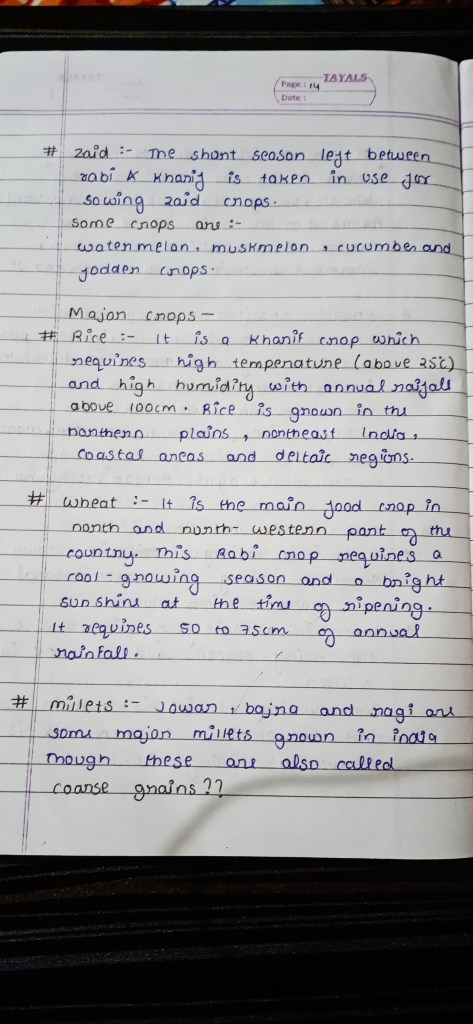 TAYALS
Page : 14
Date :
# zaid :- The short season left between
rabi & Kharif is taken in use for
sowing zaid crops.
some crops are :-
watermelon, muskmelon, cucumber and
fodder crops.
Major crops —
# Rice :- It is a Kharif crop which
requires high temperature (above 25°c)
and high humidity with annual raifall
above 100cm. Rice is grown in the
northern plains, northeast India,
coastal areas and deltaic regions.
# wheat :- It is the main food crop in
north and north-western part of the
country. This Rabi crop requires a
cool-growing season and a bright
sunshine at the time of ripening.
It requires 50 to 75cm of annual
rainfall.
# millets :- Jowar, bajra and ragi are
some major millets grown in india
though these are also called
coarse grains ??